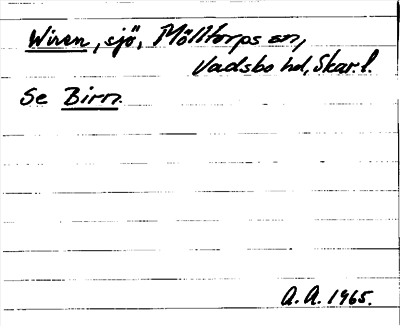 Wiren, sjö, Mölltorps sn,
Vadsbo hd, Skar l.
Se Birn.
A. A. 1965.